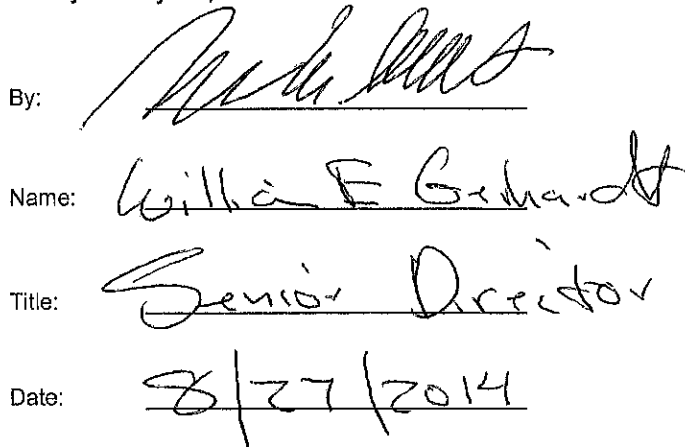 By:
Name: William E Gerhardt
Title: Senior Director
Date: 8/27/2014